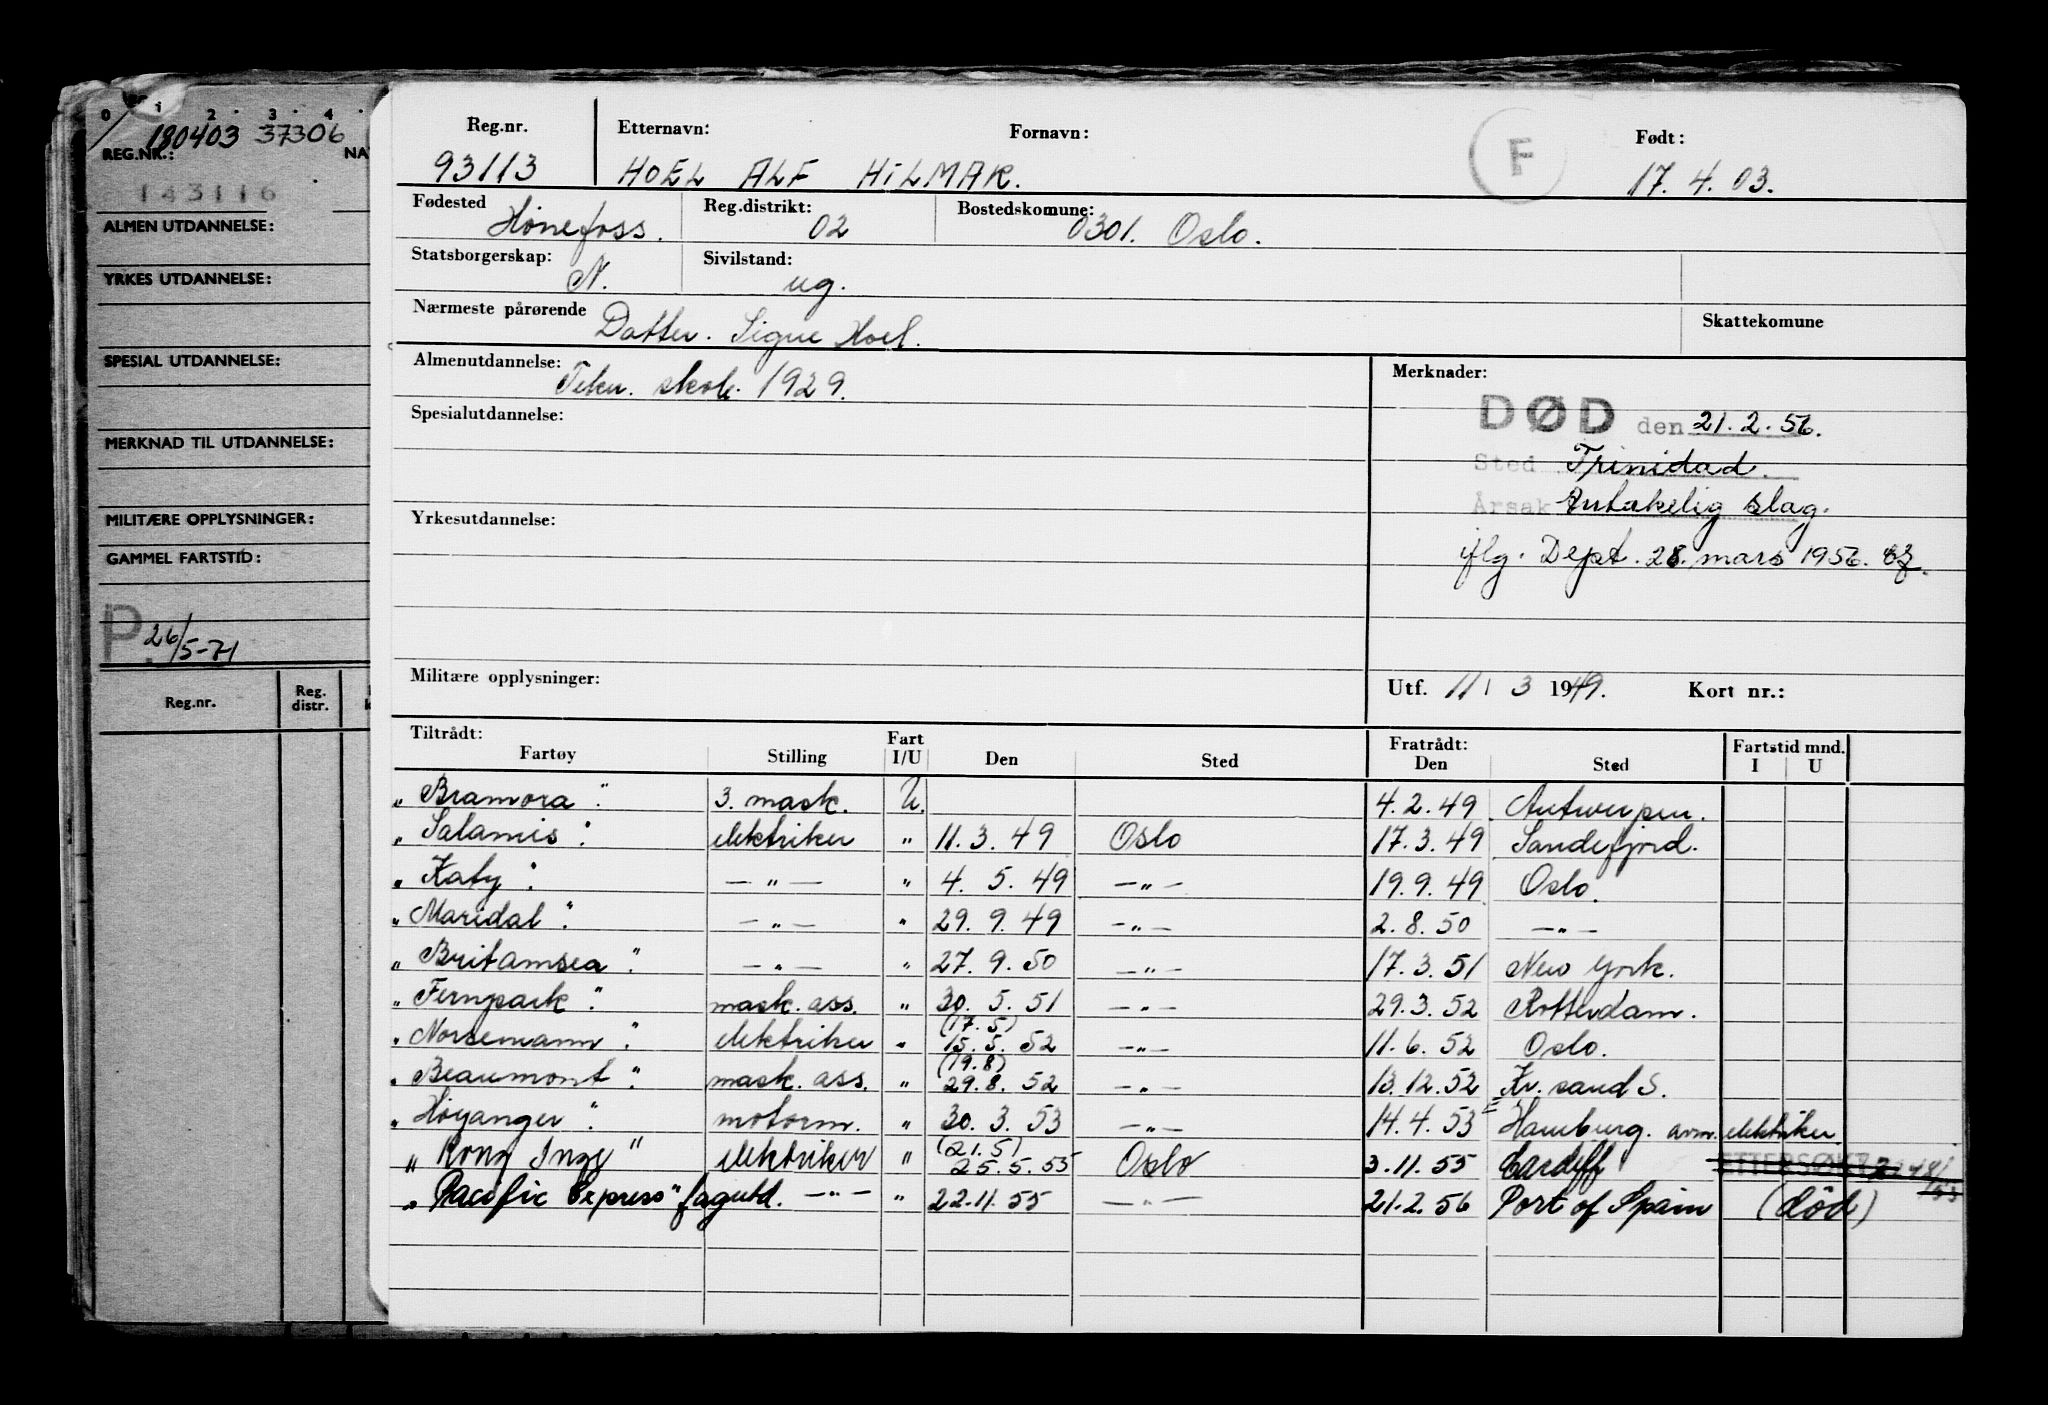 0 1 2 3 4
180403 37306
REG.NR.: NA
143116
ALMEN UTDANNELSE:
YRKES UTDANNELSE:
SPESIAL UTDANNELSE:
MERKNAD TIL UTDANNELSE:
MILITÆRE OPPLYSNINGER:
GAMMEL FARTSTID:
P. 26/5-71
Reg.nr. Reg. distr.
Reg.nr. Etternavn: Fornavn: F Født:
93113 HOEL ALF HILMAR. 17. 4. 03.
Fødested Hönefoss. Reg.distrikt: 02 Bostedskomune: 0301. Oslo.
Statsborgerskap: N. Sivilstand: ug.
Nærmeste pårørende Datter. Signe Hoel. Skattekomune
Almenutdannelse: Tekn. skole. 1929. Merknader:
Spesialutdannelse: DØD den 21. 2. 56.
Sted Trinidad.
Årsak Antakelig slag.
Yrkesutdannelse: iflg. Dept. 28. mars 1956.
Militære opplysninger: Utf. 11 / 3 1949. Kort nr.:
Tiltrådt: Fart Fratrådt: Fartstid mnd.
Fartøy Stilling I/U Den Sted Den Sted I U
"Bramora" 3. mask. U. 4. 2. 49 Antwerpen.
"Salamis" elektriker " 11. 3. 49 Oslo 17. 3. 49 Sandefjord.
"Katy" — " — " 4. 5. 49 — " — 19. 9. 49 Oslo.
"Maridal" — " — " 29. 9. 49 — " — 2. 8. 50 — " —
"Britamsea" — " — " 27. 9. 50 — " — 17. 3. 51 New York.
"Fernpark" mask. ass. " 30. 5. 51 — " — 29. 3. 52 Rotterdam.
(17. 5)
"Norsemann" elektriker " 15. 5. 52 — " — 11. 6. 52 Oslo.
(19. 8)
"Beaumont" mask. ass. " 29. 8. 52 — " — 13. 12. 52 Kr. sand S.
"Høyanger" motorm. " 30. 3. 53 — " — 14. 4. 53 Hamburg. avm. elektriker.
(21. 5)
"Kong Inge" elektriker " 25. 5. 55 Oslo 3. 11. 55 Cardiff ETTERSØKT
"Pacific Express" fagutd. — " — " 22. 11. 55 — " — 21. 2. 56 Port of Spain (död)